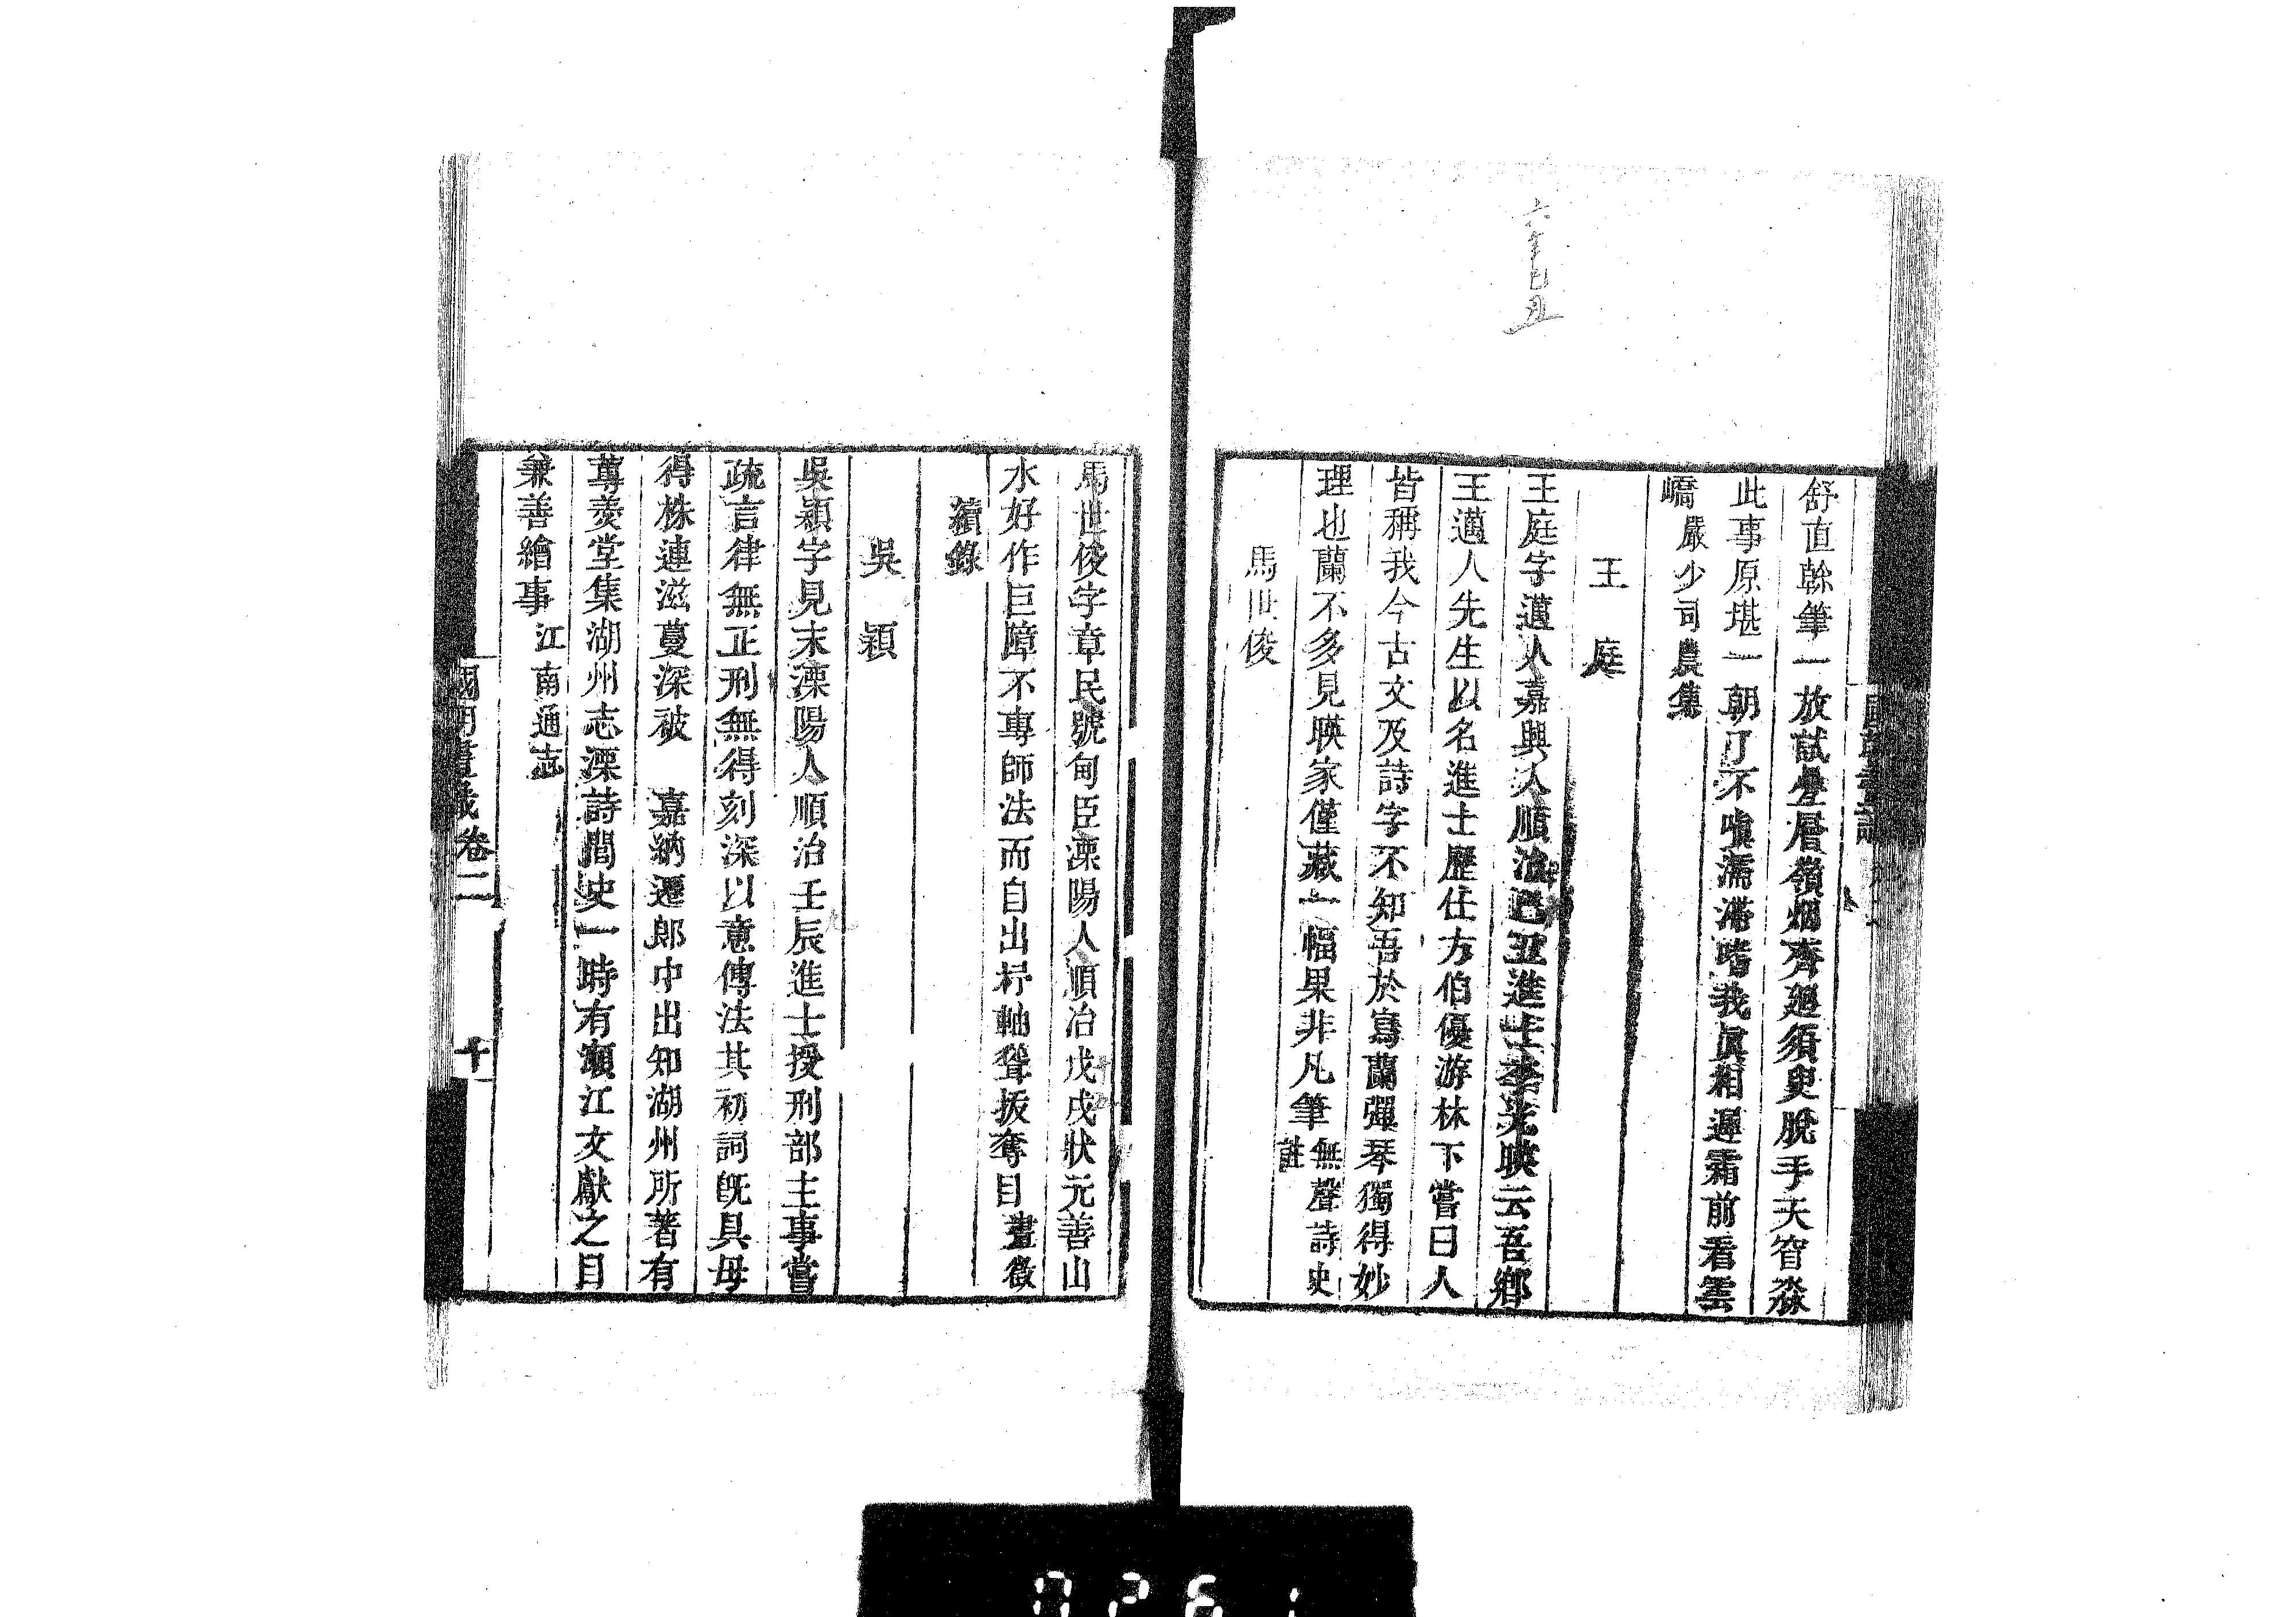 六年己丑
舒直幹筆一放試疊層嶺烟齊趣須臾脫手天窅淼
此事原堪一朝了不嗔濡滯嗜我眞相遲霜前看雲
嶠嚴少司農集
王庭
王庭字邁人嘉興人順治己丑進士李光暎云吾鄉
王邁人先生以名進士歷任方伯優游林下嘗曰人
皆稱我今古文及詩字不知吾於寫蘭彈琴獨得妙
理也蘭不多見暎家僅藏一幅果非凡筆無聲詩史
註
馬世俊
馬世俊字章民號甸臣溧陽人順治戊戌狀元善山
水好作巨障不專師法而自出杼軸聳拔奪目畫徵
續錄
吳穎
吳穎字見末溧陽人順治壬辰進士授刑部主事嘗
疏言律無正刑無得刻深以意傳法其初詞旣具毋
得株連滋蔓深被 嘉納遷郎中出知湖州所著有
蓴羹堂集湖州志溧詩閭史一時有瀨江文獻之目
兼善繪事江南通志
國朝畫識卷二 十
0261